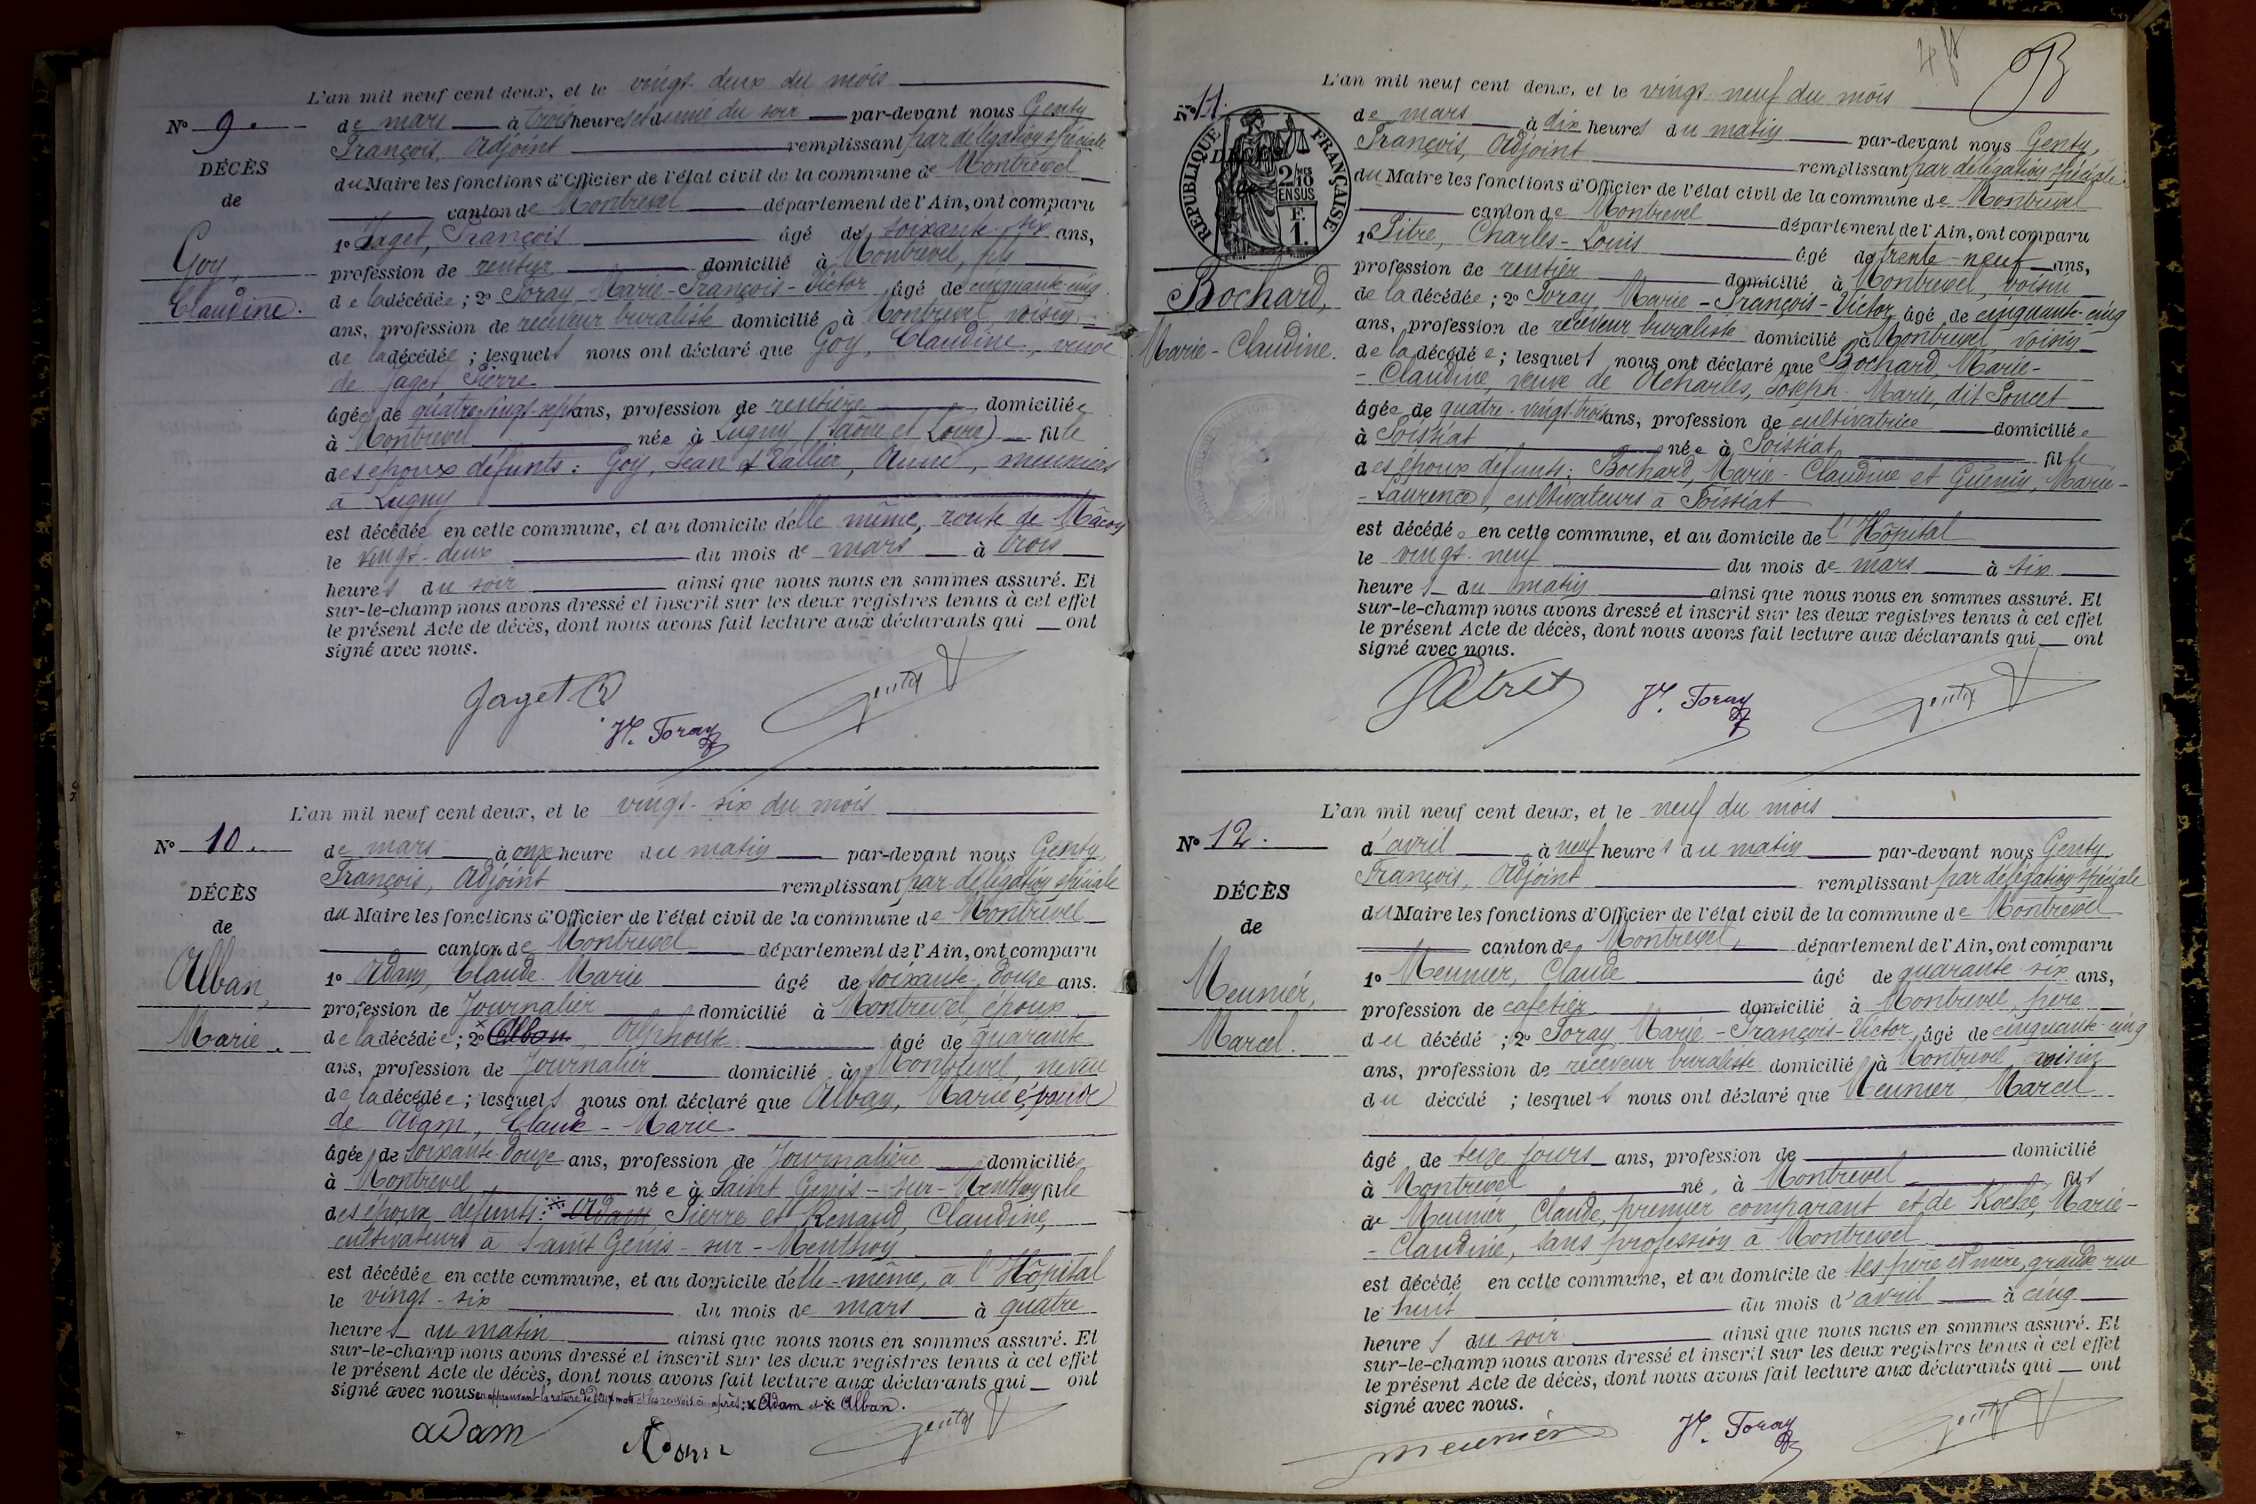 L'an mil neuf cent deux, et le vingt-deux du mois
N° 9.
de mars à trois heures et demie du soir par-devant nous Genty
François, Adjoint remplissant par délégation spéciale
DÉCÈS
du Maire les fonctions d'Officier de l'état civil de la commune de Montrevel
de
canton de Montrevel département de l'Ain, ont comparu
Goy,
Claudine.
1° Jaget, François âgé de soixante-six ans,
profession de rentier domicilié à Montrevel, fils
de la décédée ; 2° Foray, Marie-François-Victor âgé de cinquante-cinq
ans, profession de receveur buraliste domicilié à Montrevel, voisin
de la décédée ; lesquels nous ont déclaré que Goy, Claudine, veuve
de Jaget Pierre
âgée de quatre-vingt-sept ans, profession de rentière domiciliée
à Montrevel née à Lugny (Saône et Loire) fille
des époux défunts : Goy, Jean et Vallier, Anne, meuniers
à Lugny
est décédée en cette commune, et au domicile d'elle même, route de Mâcon
le vingt-deux du mois de mars à trois
heures du soir ainsi que nous nous en sommes assuré. Et
sur-le-champ nous avons dressé et inscrit sur les deux registres tenus à cet effet
le présent Acte de décès, dont nous avons fait lecture aux déclarants qui ont
signé avec nous.
Jaget
Foray
Genty
L'an mil neuf cent deux, et le vingt-six du mois
N° 10.
de mars à onze heure du matin par-devant nous Genty,
François, Adjoint remplissant par délégation spéciale
DÉCÈS
du Maire les fonctions d'Officier de l'état civil de la commune de Montrevel
de
canton de Montrevel département de l'Ain, ont comparu
Alban,
Marie.
1° Adam, Claude-Marie âgé de soixante-douze ans.
profession de Journalier domicilié à Montrevel, époux
de la décédée ; 2° x Alban, Alphonse âgé de quarante
ans, profession de Journalier domicilié à Montrevel, neveu
de la décédée ; lesquels nous ont déclaré que Alban, Marie épouse
de Adam, Claude-Marie
âgée de soixante-douze ans, profession de Journalière domiciliée
à Montrevel née à Saint Genis-sur-Menthon fille
des époux défunts : Adam, Pierre et Renaud, Claudine,
cultivateurs à Saint Genis-sur-Menthon
est décédée en cette commune, et au domicile d'elle-même, à l'Hôpital
le vingt-six du mois de mars à quatre
heures du matin ainsi que nous nous en sommes assuré. Et
sur-le-champ nous avons dressé et inscrit sur les deux registres tenus à cet effet
le présent Acte de décès, dont nous avons fait lecture aux déclarants qui ont
signé avec nous en approuvant la rature de deux mots et les renvois ci-après : x Adam et Alban.
adam
Adam
Genty
L'an mil neuf cent deux, et le vingt-neuf du mois
N° 11.
de mars à dix heures du matin par-devant nous Genty,
François, Adjoint remplissant par délégation spéciale
DÉCÈS
RÉPUBLIQUE FRANÇAISE
2/10
EN SUS
F.
1.
du Maire les fonctions d'Officier de l'état civil de la commune de Montrevel
canton de Montrevel département de l'Ain, ont comparu
Bochard,
Marie-Claudine.
1° Pitre, Charles-Louis âgé de trente-neuf ans,
profession de rentier domicilié à Montrevel, voisin
de la décédée ; 2° Foray, Marie-François-Victor, âgé de cinquante-cinq
ans, profession de receveur buraliste domicilié à Montrevel voisin
de la décédée ; lesquels nous ont déclaré que Bochard, Marie-
-Claudine, veuve de Joseph-Marie, dit Poncet
âgée de quatre-vingt-trois ans, profession de cultivatrice domiciliée
à Foissiat née à Foissiat fille
des époux défunts : Bochard, Marie-Claudine et Guénin, Marie-
-Laurence, cultivateurs à Foissiat
est décédée en cette commune, et au domicile de l'Hôpital
le vingt-neuf du mois de mars à six
heures du matin ainsi que nous nous en sommes assuré. Et
sur-le-champ nous avons dressé et inscrit sur les deux registres tenus à cet effet
le présent Acte de décès, dont nous avons fait lecture aux déclarants qui ont
signé avec nous.
Foray
Genty
L'an mil neuf cent deux, et le neuf du mois
N° 12.
d'avril à neuf heures du matin par-devant nous Genty,
François, Adjoint remplissant par délégation spéciale
DÉCÈS
du Maire les fonctions d'Officier de l'état civil de la commune de Montrevel
de
canton de Montrevel, département de l'Ain, ont comparu
Meunier,
Marcel.
1° Meunier, Claude âgé de quarante-six ans,
profession de cafetier domicilié à Montrevel, père
du décédé ; 2° Foray, Marie-François-Victor, âgé de cinquante-cinq
ans, profession de receveur buraliste domicilié à Montrevel, voisin
du décédé ; lesquels nous ont déclaré que Meunier, Marcel
âgé de seize jours ans, profession de domicilié
à Montrevel né à Montrevel fils
de Meunier, Claude, premier comparant et de Marie-
-Claudine, sans profession à Montrevel
est décédé en cette commune, et au domicile de ses père et mère, grande rue
le huit du mois d'avril à cinq
heures du soir ainsi que nous nous en sommes assuré. Et
sur-le-champ nous avons dressé et inscrit sur les deux registres tenus à cet effet
le présent Acte de décès, dont nous avons fait lecture aux déclarants qui ont
signé avec nous.
meunier
Foray
Genty